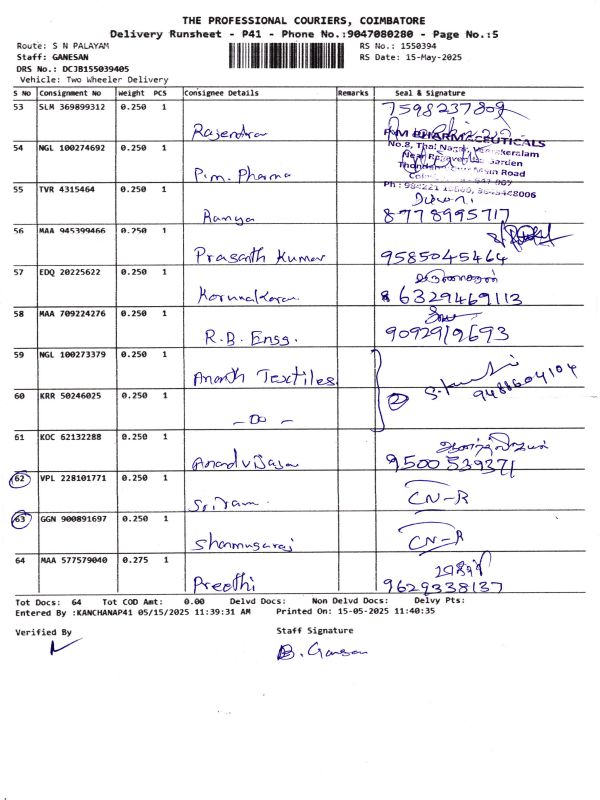 THE PROFESSIONAL COURIERS, COIMBATORE
Delivery Runsheet - P41 - Phone No.:9047080280 - Page No.:5
Route: S N PALAYAM RS No.: 1550394
Staff: GANESAN RS Date: 15-May-2025
DRS No.: DCJB155039405
Vehicle: Two Wheeler Delivery
S No Consignment No Weight PCS Consignee Details Remarks Seal & Signature
53 SLM 369899312 0.250 1 Rajendra 7598237809
54 NGL 100274692 0.250 1 P.M. Pharma
PVM PHARMACEUTICALS
No.8, Thai Nagar, Veerakeralam
Near Garden
Main Road
55 TVR 4315464 0.250 1 Ramya 8778995717
56 MAA 945399466 0.250 1 Prasanth Kumar 9585045464
57 EDQ 20225622 0.250 1 Karunakaran 6329469113
58 MAA 709224276 0.250 1 R.B. Engg. 9092919693
59 NGL 100273379 0.250 1 Ananth Textiles 2 9488604104
60 KRR 50246025 0.250 1 - Do -
61 KOC 62132288 0.250 1 Anandvijayan 9500539371
62 VPL 228101771 0.250 1 Sriram CN-R
63 GGN 900891697 0.250 1 Shanmugaraj CN-R
64 MAA 577579040 0.275 1 Preethi 9629338137
Tot Docs: 64 Tot COD Amt: 0.00 Delvd Docs: Non Delvd Docs: Delvy Pts:
Entered By :KANCHANAP41 05/15/2025 11:39:31 AM Printed On: 15-05-2025 11:40:35
Verified By Staff Signature
B. Ganesan